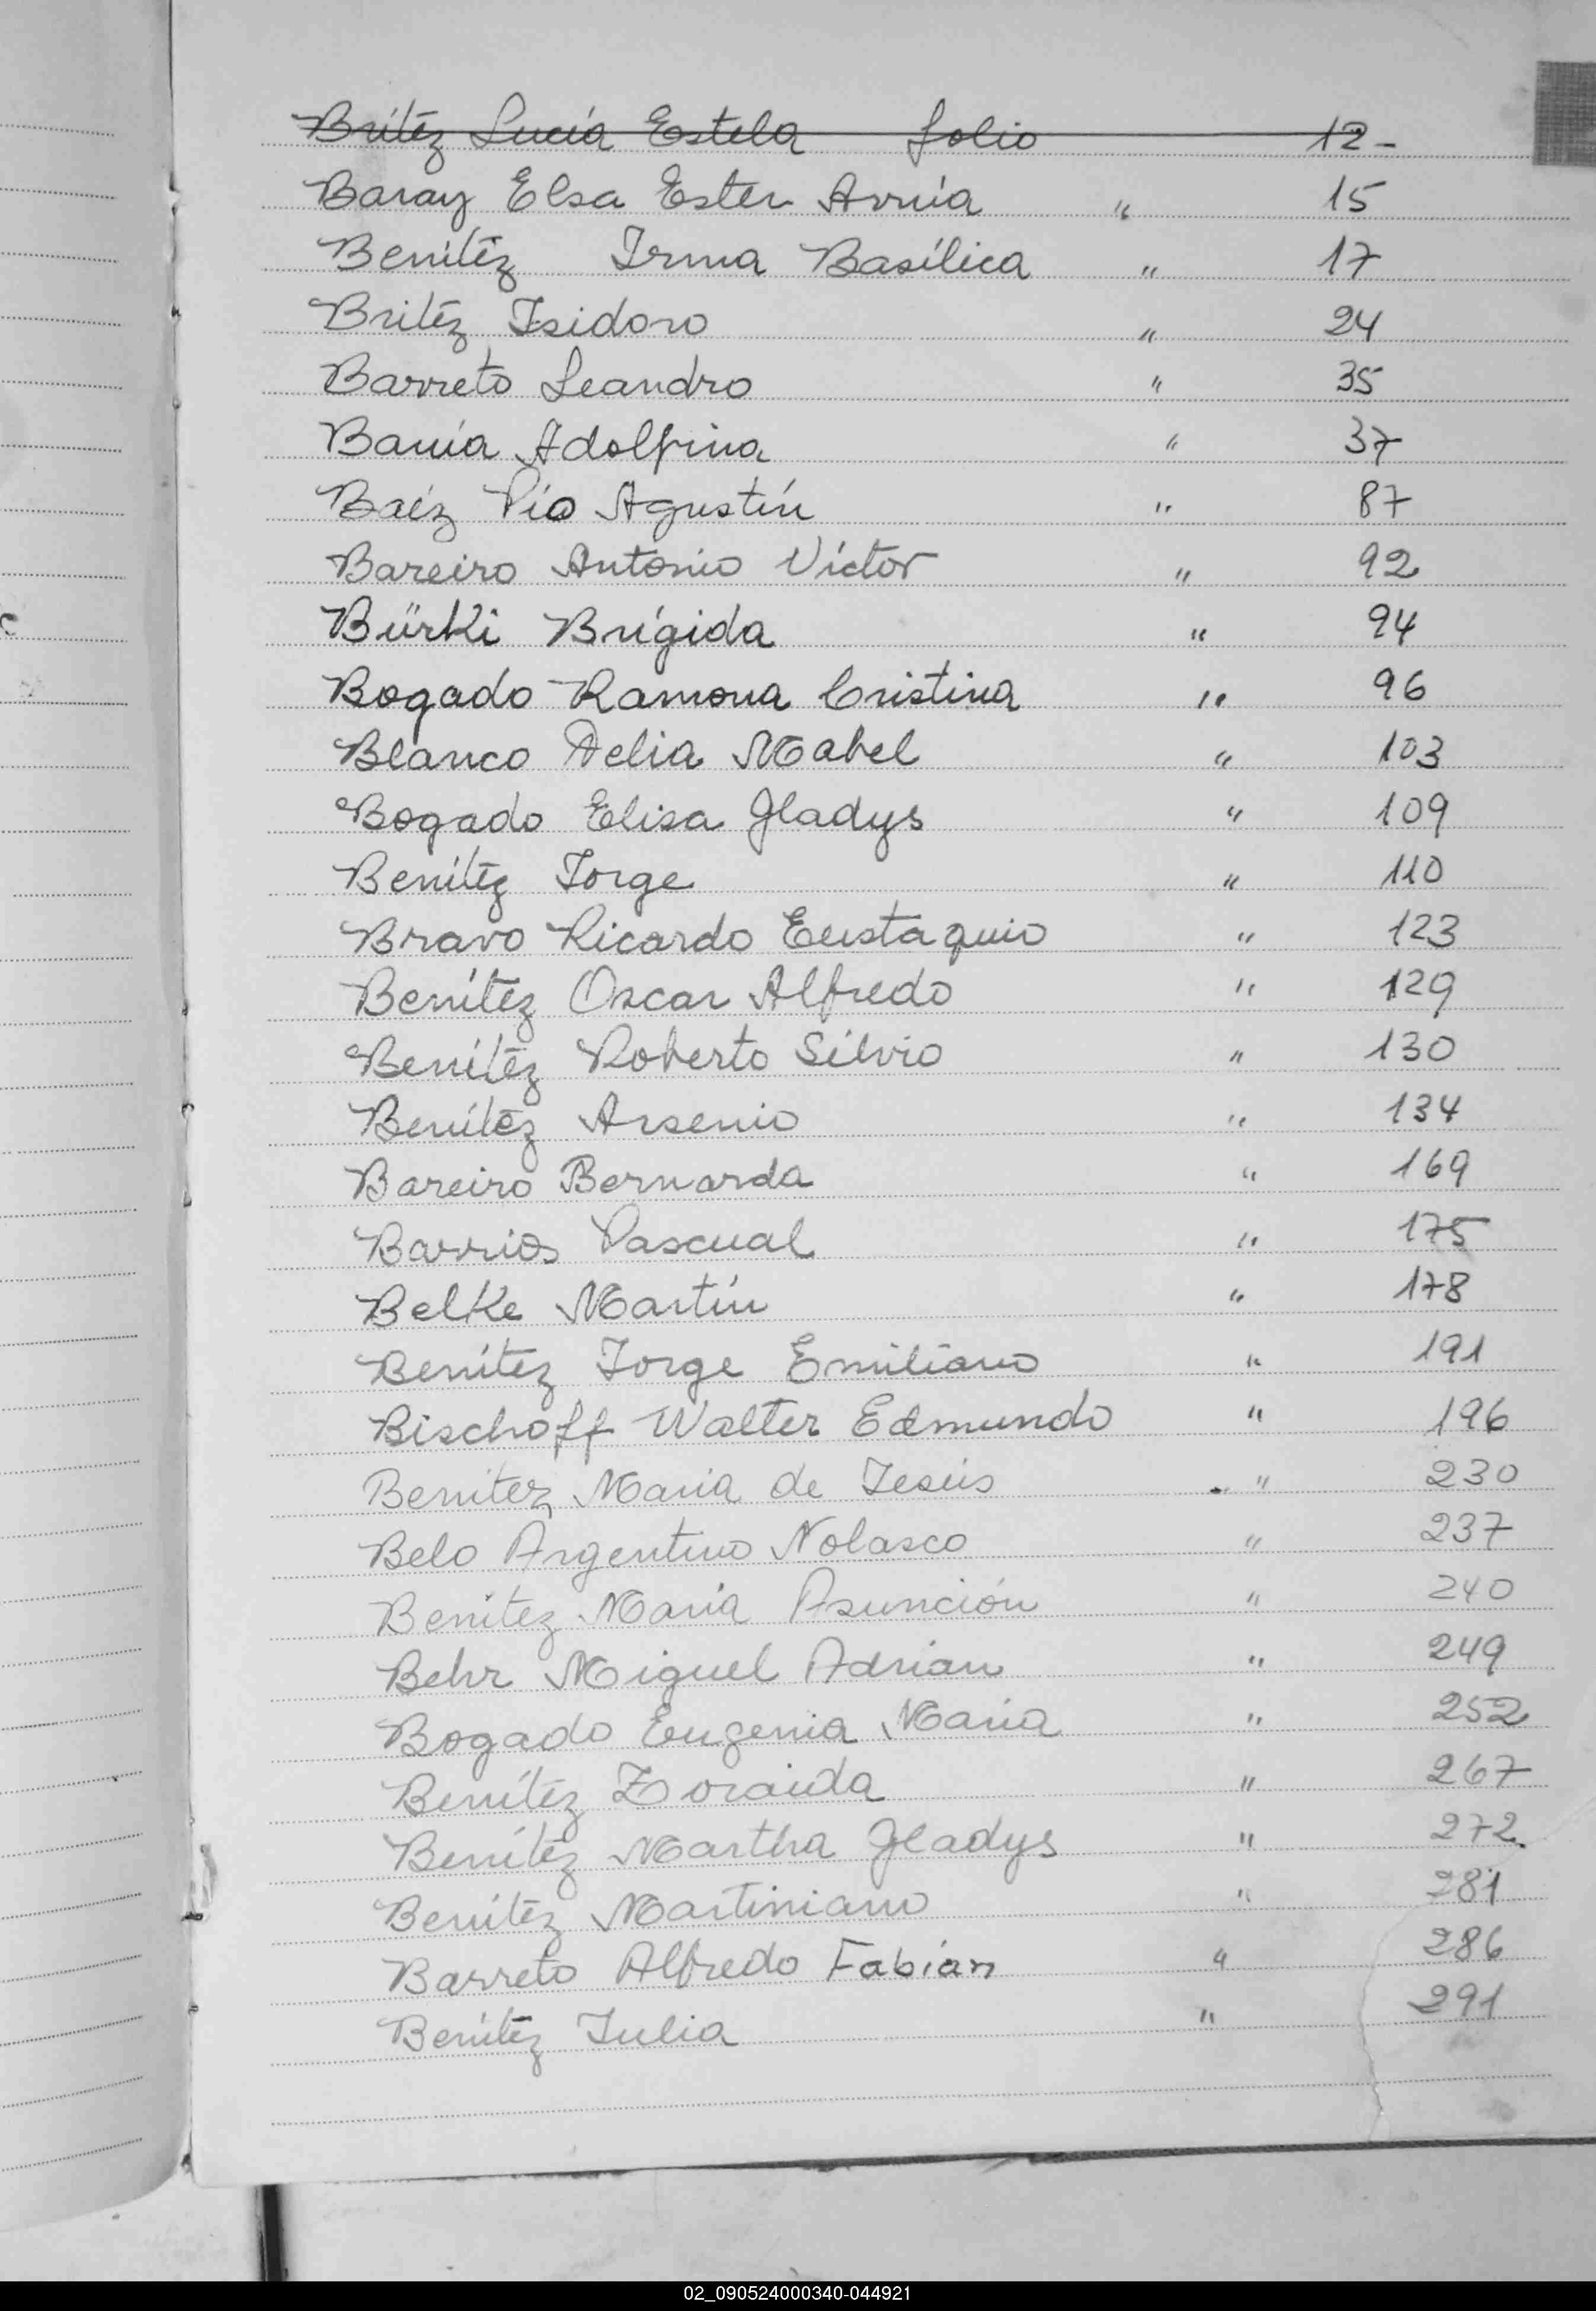 Britéz Lucía Estela folio 12-
Baray Elsa Ester " 15
Benítéz Irma Basílica " 17
Britéz Isidoro " 24
Barreto Leandro " 35
Adolfina " 37
Baéz Pío Agustín " 87
Bareiro Antonio Víctor " 92
Bürki Brígida " 94
Bogado Ramona Cristina " 96
Blanco Delia Mabel " 103
Bogado Elisa Gladys " 109
Benítéz Jorge " 110
Bravo Ricardo Eustaquio " 123
Benítez Oscar Alfredo " 129
Benítéz Roberto Silvio " 130
Benítéz Arsenio " 134
Bareiro Bernarda " 169
Barrios Pascual " 175
Belke Martín " 178
Benítez Jorge Emiliano " 191
Bischoff Walter Edmundo " 196
Benitez María de Jesús " 230
Belo Argentino Nolasco " 237
Benítez María Asunción " 240
Behr Miguel Adrián " 249
Bogado Eugenia María " 252
Benítéz Zoraida " 267
Benítéz Martha Gladys " 272
Benítéz Martiniano " 281
Barreto Alfredo Fabián " 286
Benítéz Julia " 291
02_090524000340-044921